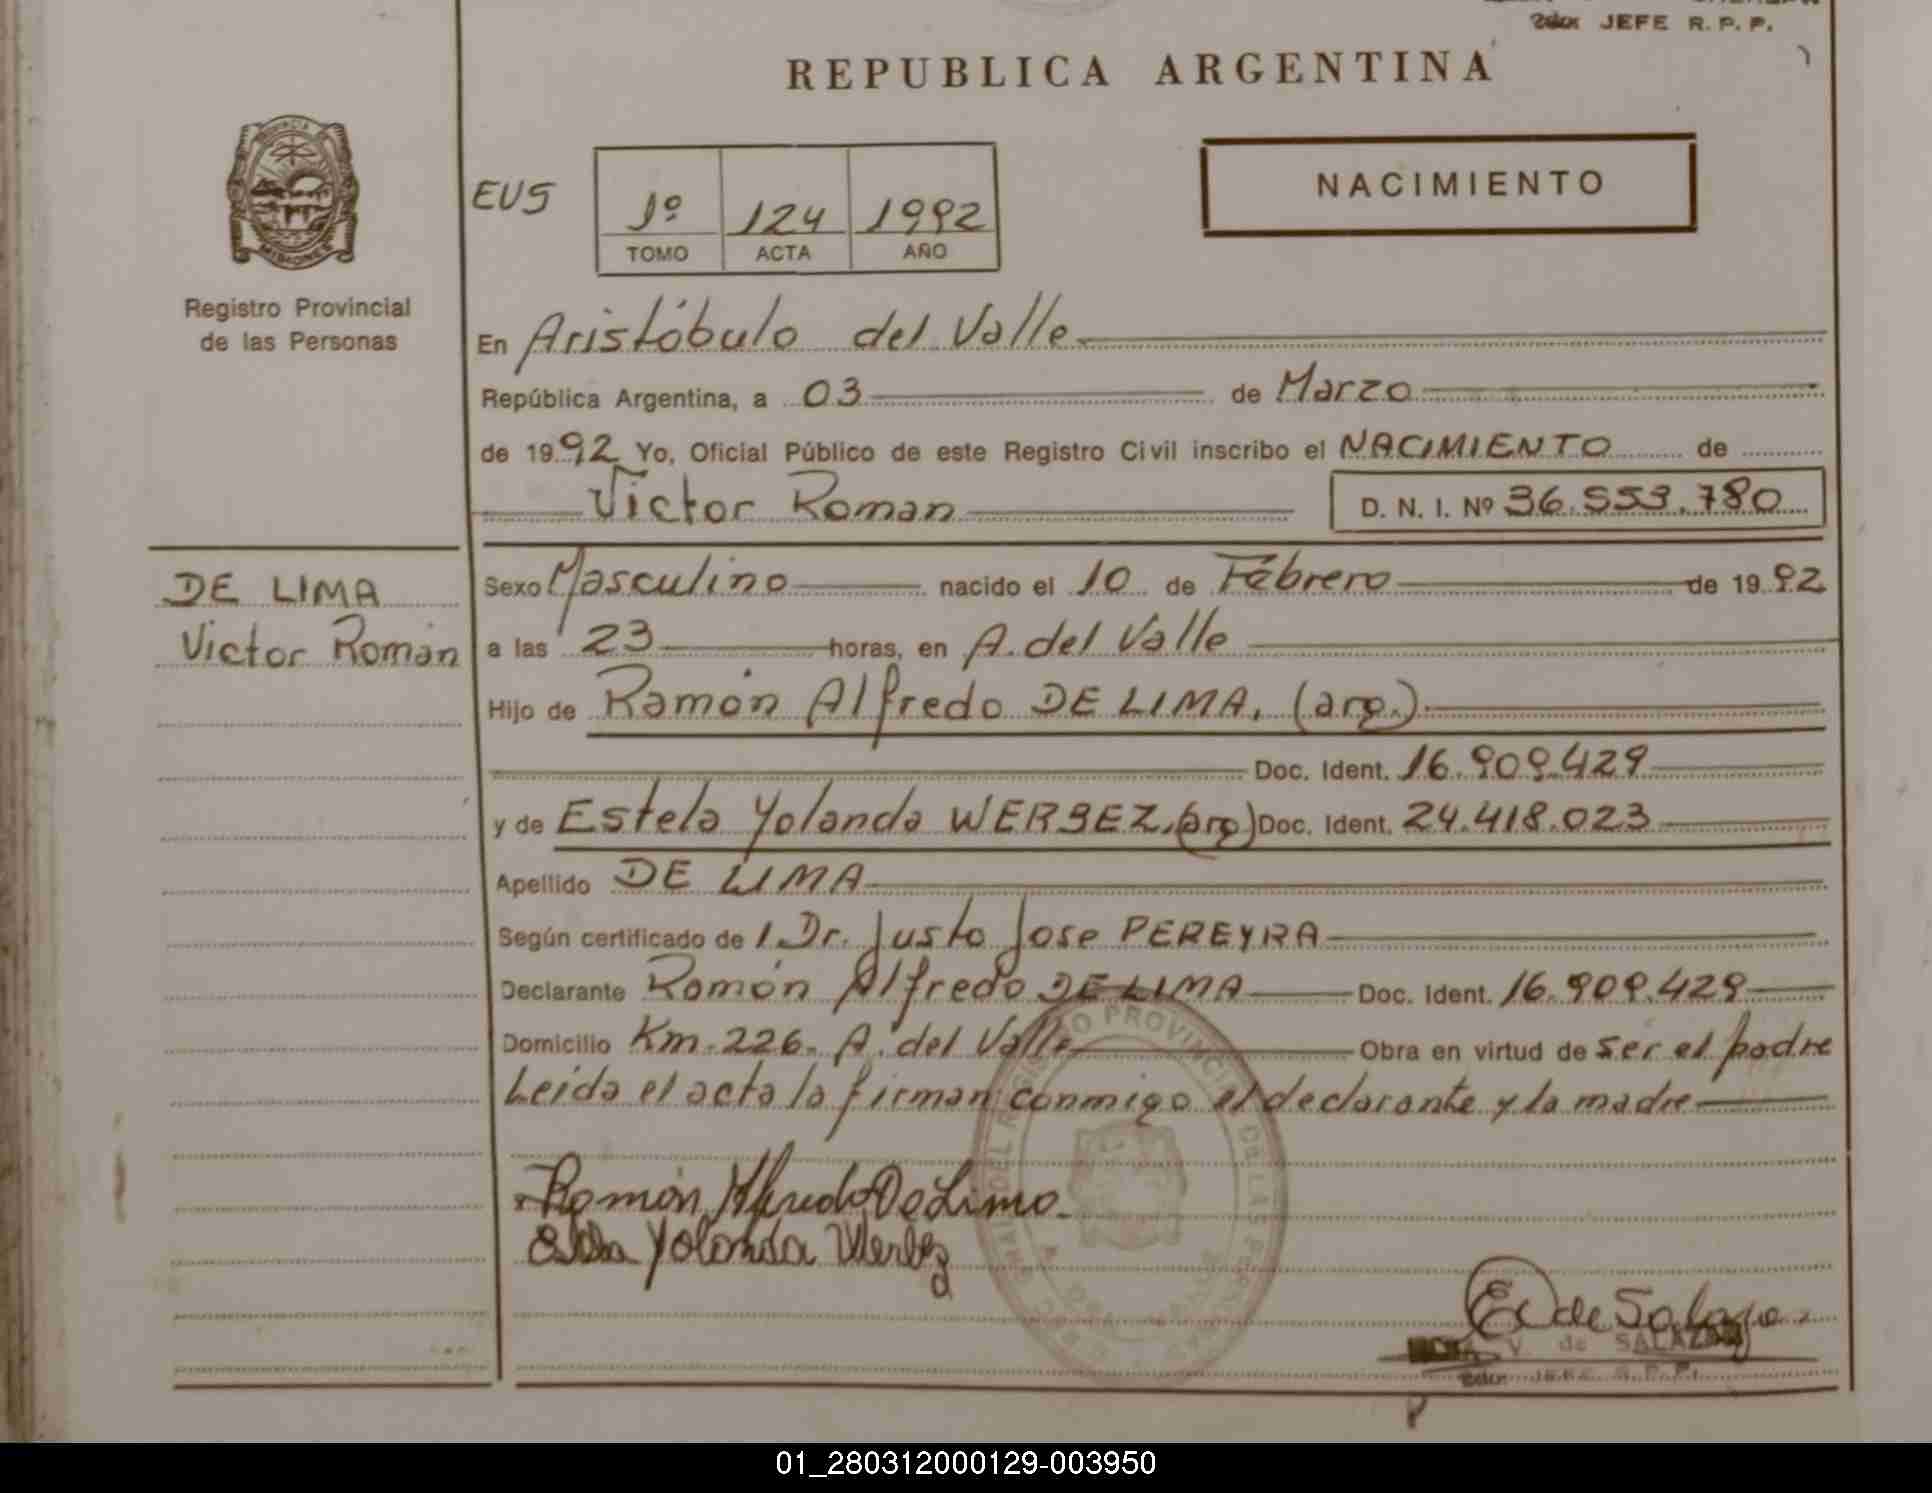 JEFE R. P. P.
REPUBLICA ARGENTINA
NACIMIENTO
EUS
1º 124 1992
TOMO ACTA AÑO
MISIONES
Registro Provincial
de las Personas
En Aristóbulo del Valle
República Argentina, a 03 de Marzo
de 1992 Yo, Oficial Público de este Registro Civil inscribo el NACIMIENTO de
Victor Roman D. N. I. Nº 36.553.780
DE LIMA
Victor Roman
Sexo Masculino nacido el 10 de Febrero de 1992
a las 23 horas, en A. del Valle
Hijo de Ramón Alfredo DE LIMA, (arg.)
Doc. Ident. 16.909.429
y de Estela Yolanda WERBEZ, (arg) Doc. Ident. 24.418.023
Apellido DE LIMA
Según certificado de 1. Dr. Justo Jose PEREYRA
Declarante Ramón Alfredo DE LIMA Doc. Ident. 16.909.429
Domicilio Km. 226. A. del Valle Obra en virtud de ser el padre
Leída el acta la firman conmigo el declarante y la madre
Ramón Alfredo De Lima
Yolanda Werbez
de Salazar
V. de SALAZAR
JEFE R.P.P.
01_280312000129-003950